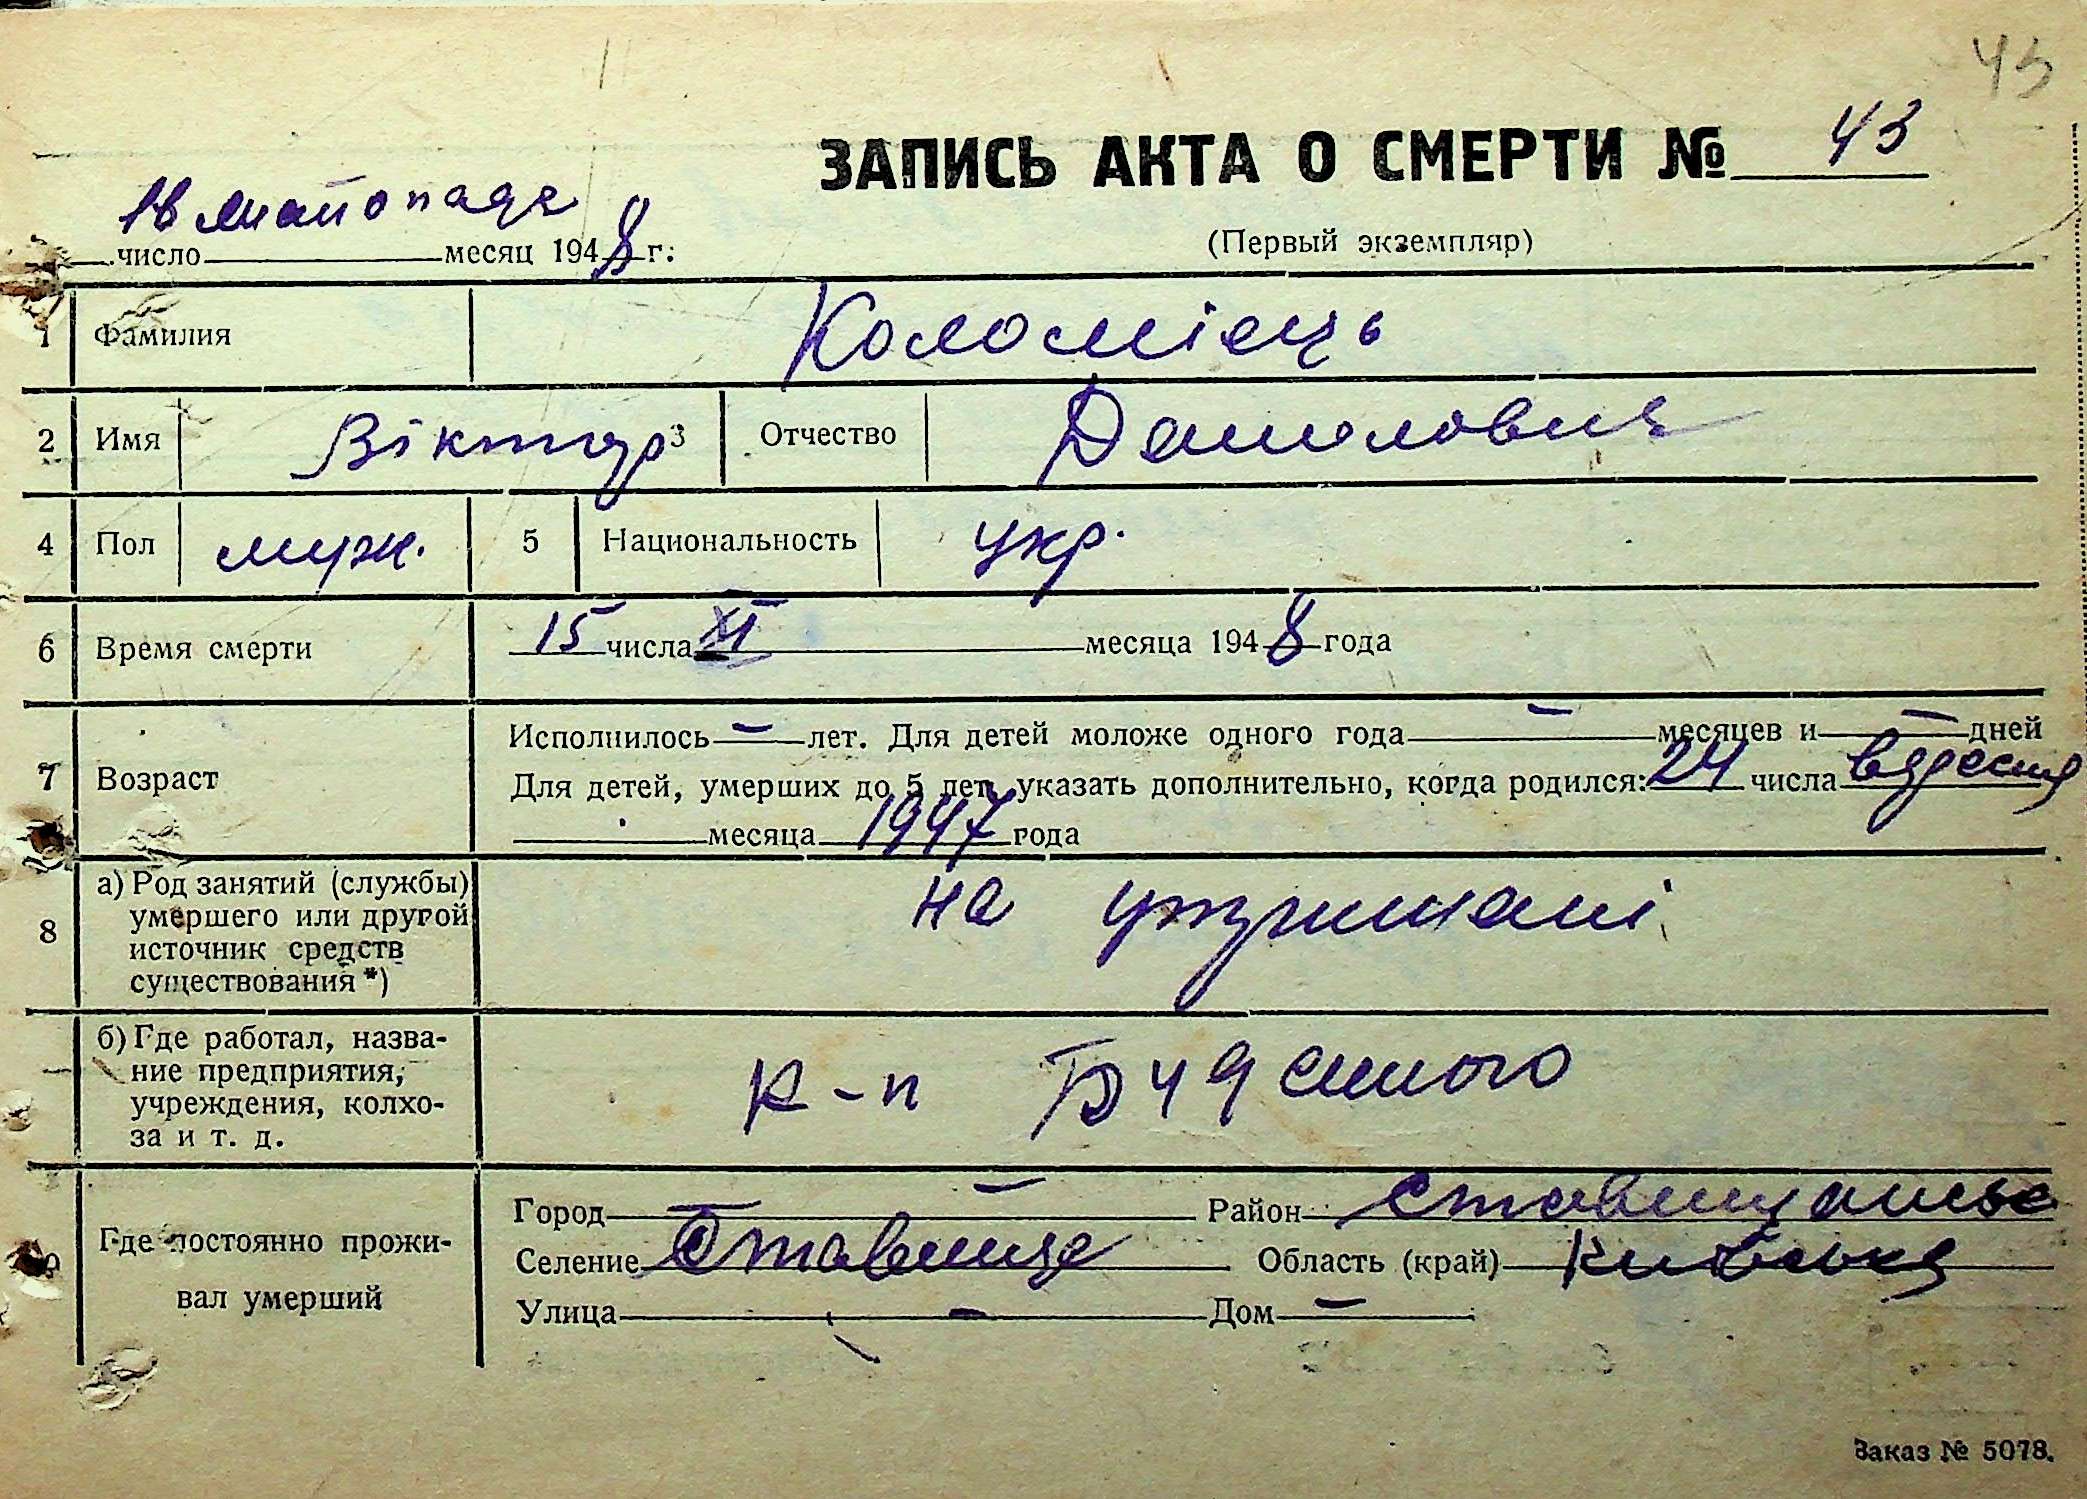 43
ЗАПИСЬ АКТА О СМЕРТИ № 43
18 листопада
число месяц 1948 г.
(Первый экземпляр)
1 Фамилия Коломієць
2 Имя Віктор 3 Отчество Данилович
4 Пол муж. 5 Национальность укр.
6 Время смерти 15 числа XI месяца 1948 года
7 Возраст
Исполнилось — лет. Для детей моложе одного года — месяцев и — дней
Для детей, умерших до 5 лет, указать дополнительно, когда родился: 24 числа вересня
месяца 1947 года
8 а) Род занятий (службы) умершего или другой источник средств существования *)
на утриманні
б) Где работал, название предприятия, учреждения, колхоза и т. д.
к-п Будьонного
Где постоянно проживал умерший
Город — Район Ставищанське
Селение Ставище Область (край) Київська
Улица — Дом —
Заказ № 5078.